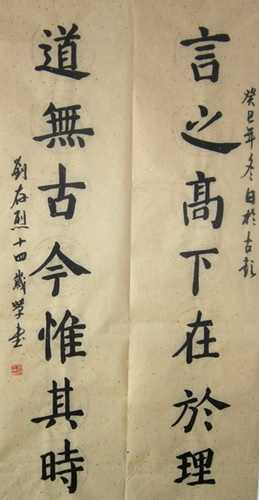 癸巳年冬日於古彭
言之高下在於理
道無古今惟其時
劉存烈十四歲學書